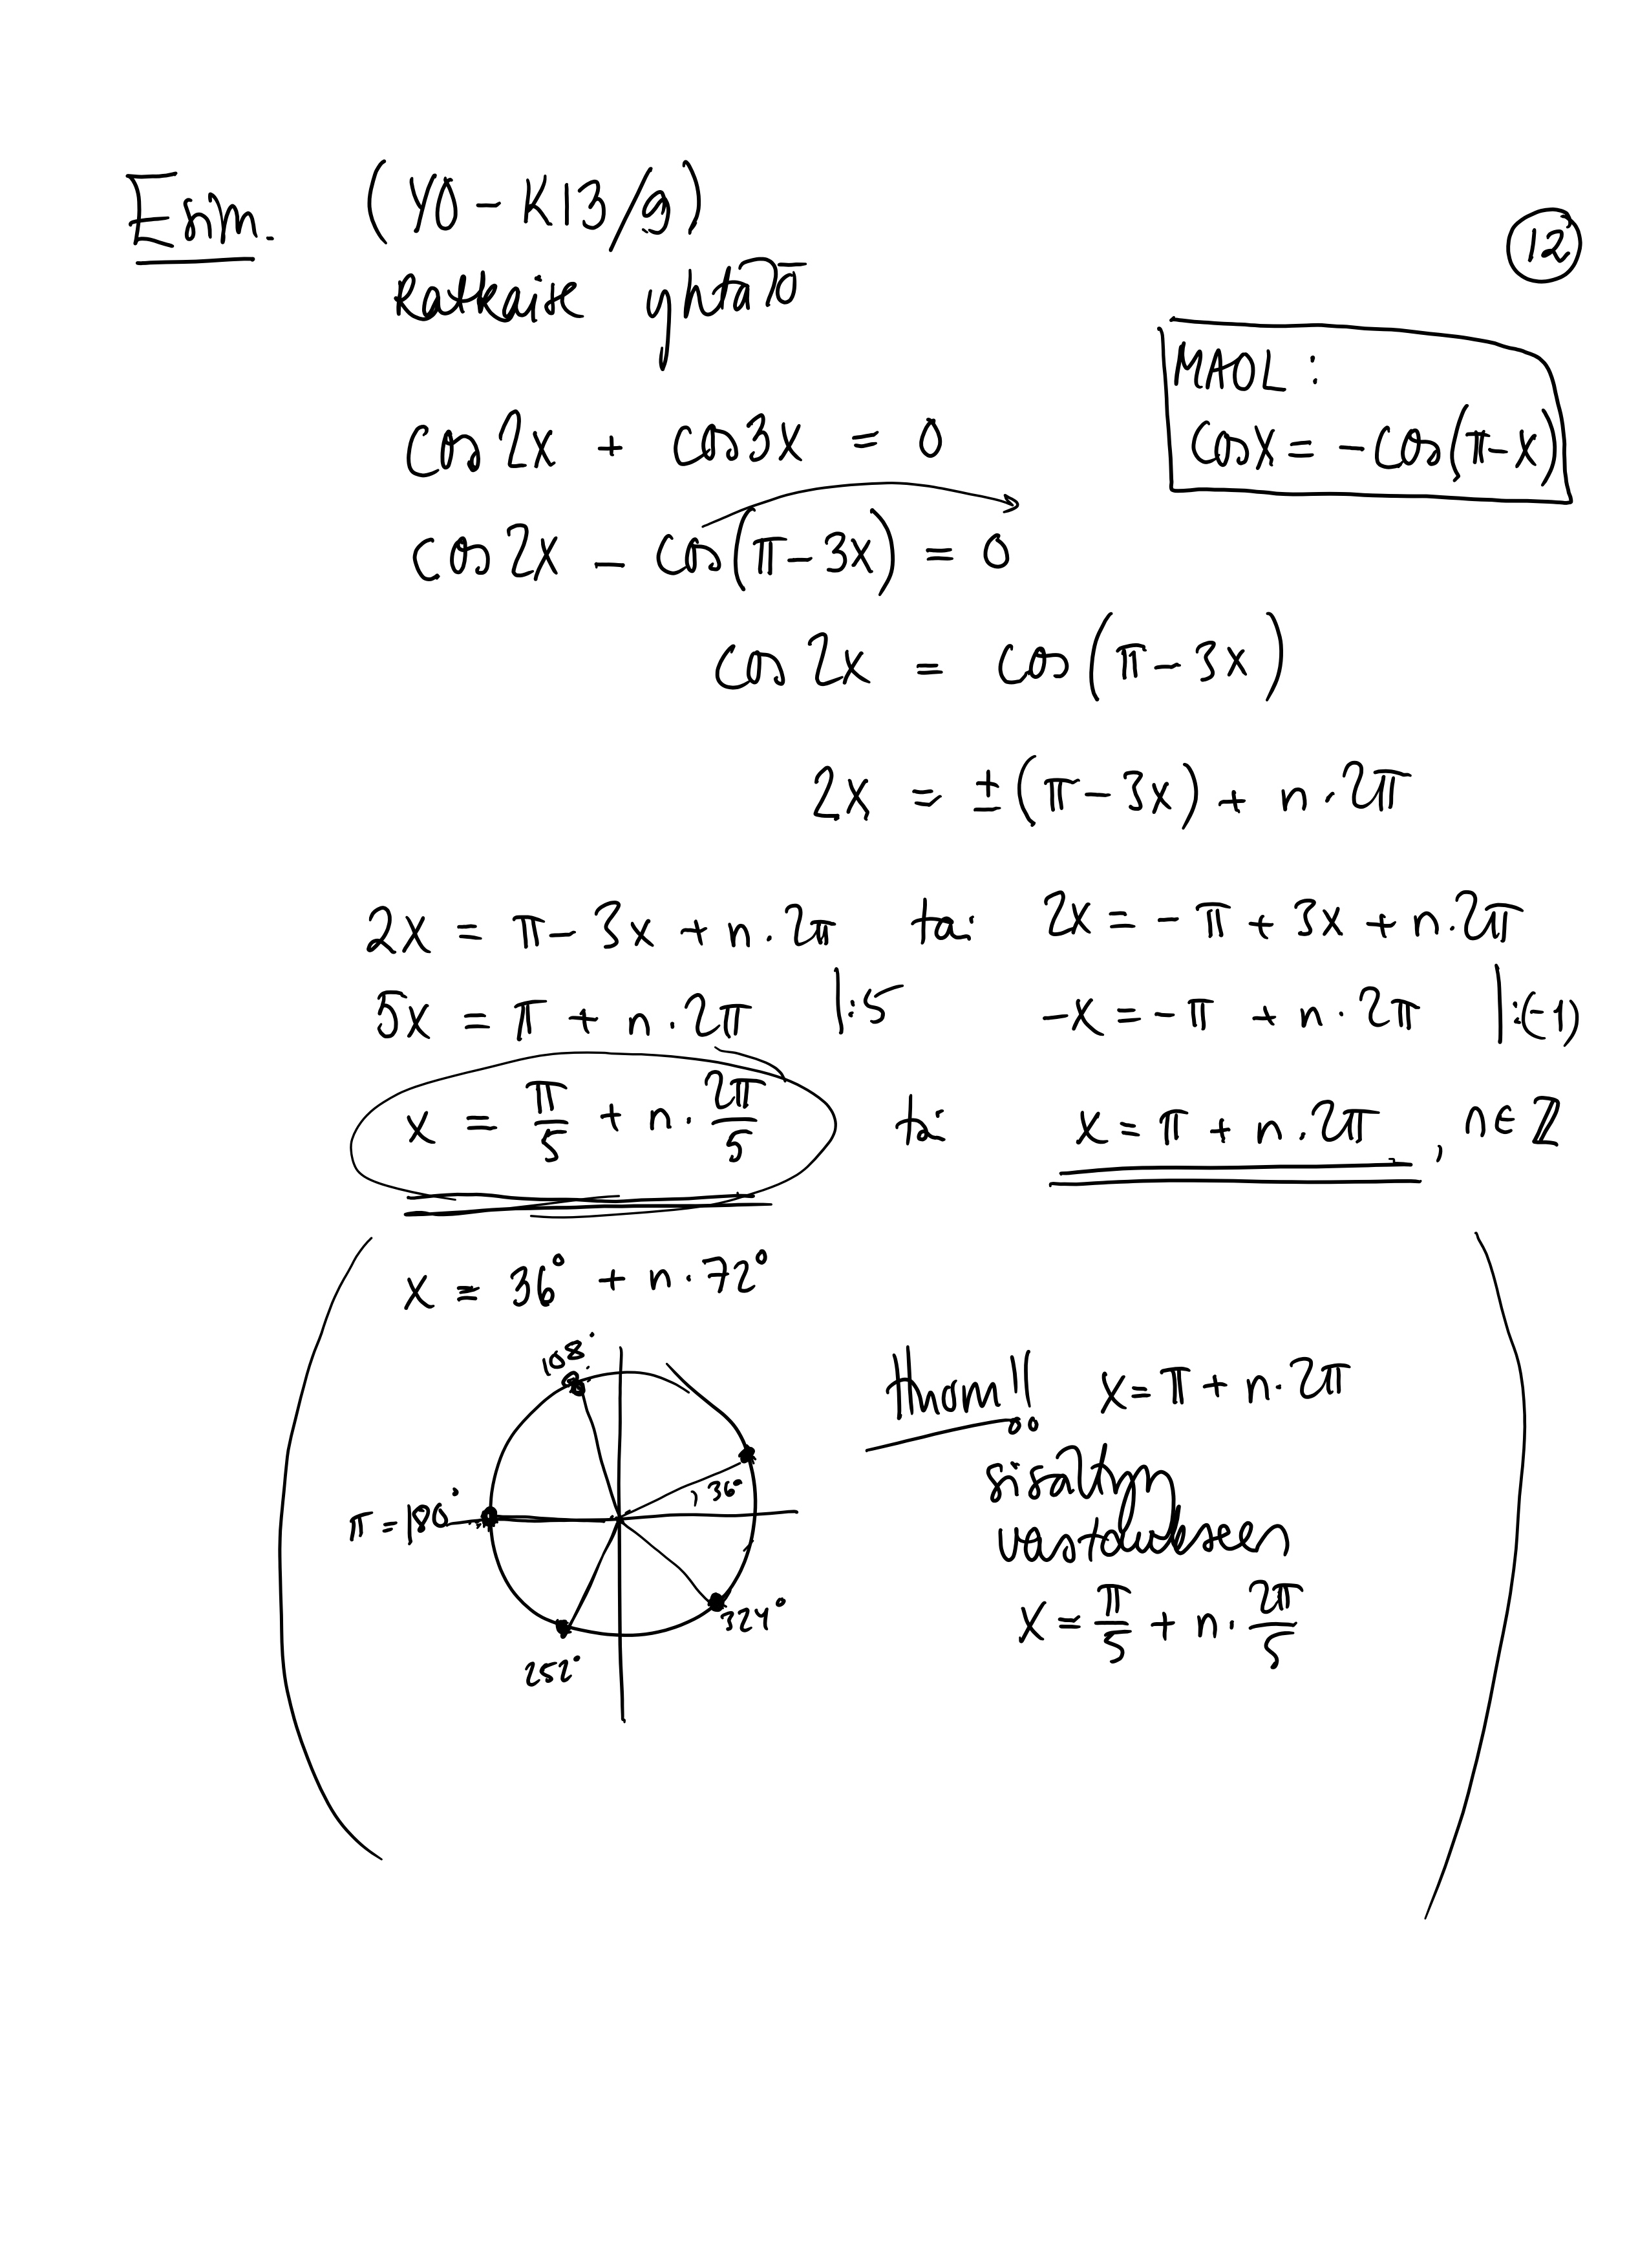 Esm. (YO-K13/9)
12
Ratkaise yhtälö
MAOL:
cos x = -cos(π-x)
cos 2x + cos 3x = 0
cos 2x - cos(π-3x) = 0
cos 2x = cos(π-3x)
2x = ±(π-3x) + n·2π
2x = π-3x + n·2π tai 2x = -π + 3x + n·2π
5x = π + n·2π |:5 -x = -π + n·2π |:(-1)
x = π/5 + n·2π/5 tai x = π + n·2π, n∈ℤ
x = 36° + n·72°
108°
Huom!! x = π + n·2π
36°
sisältyy
π = 180°
vastaukseen
324°
x = π/5 + n·2π/5
252°